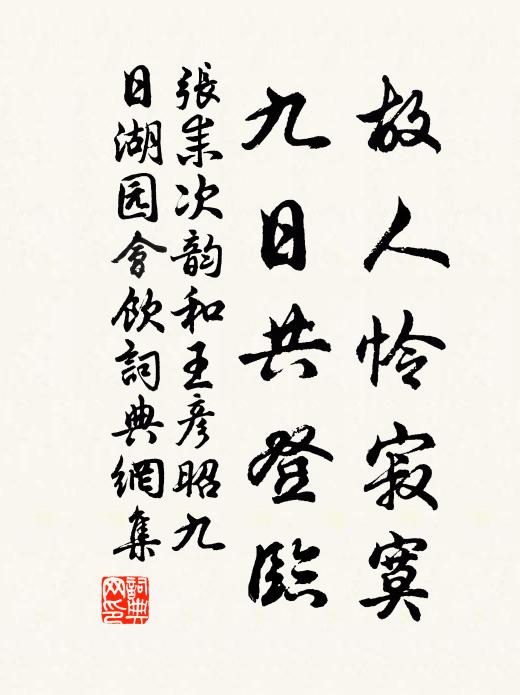 故人怜寂寞
九日共登臨
張耒次韵和王彦昭九
日湖园會飲詞典網集
詞典
网印